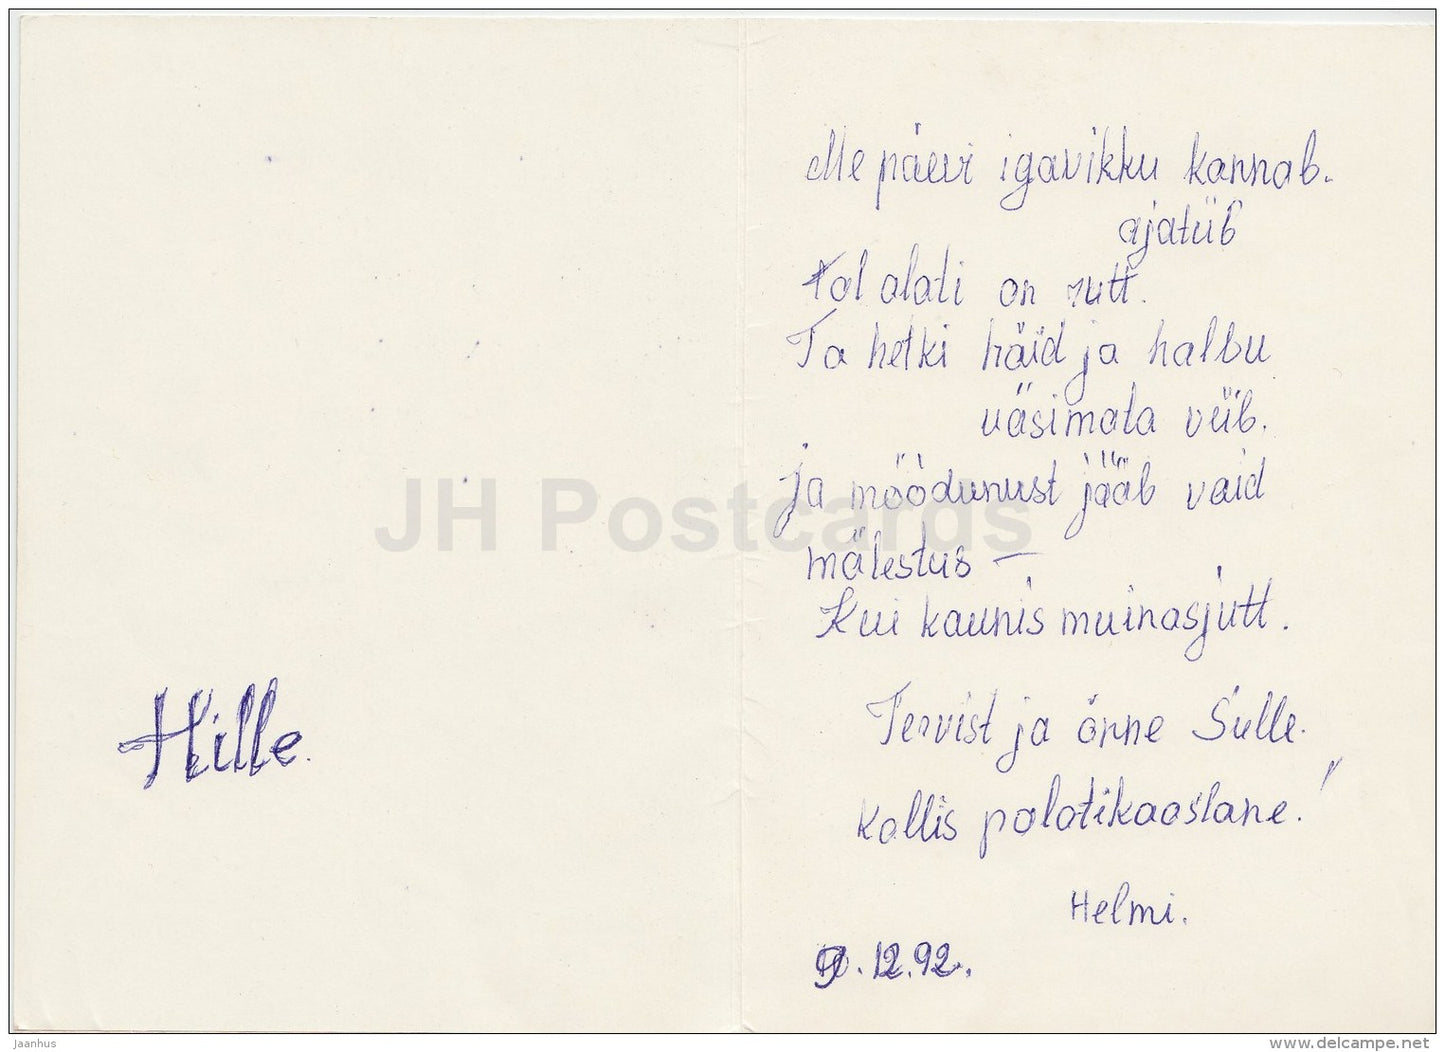 Hille.
Me päevi igavikku kannab.
ajatiib
tal alati on rutt.
Ta hetki häid ja halbu
väsimata viib.
ja möödunust jääb vaid
mälestus —
Kui kaunis muinasjutt.
Tervist ja õnne Sulle.
kallis palatikaaslane!
Helmi.
.12.92.
JH Postcards
jaanhus
www.delcampe.net